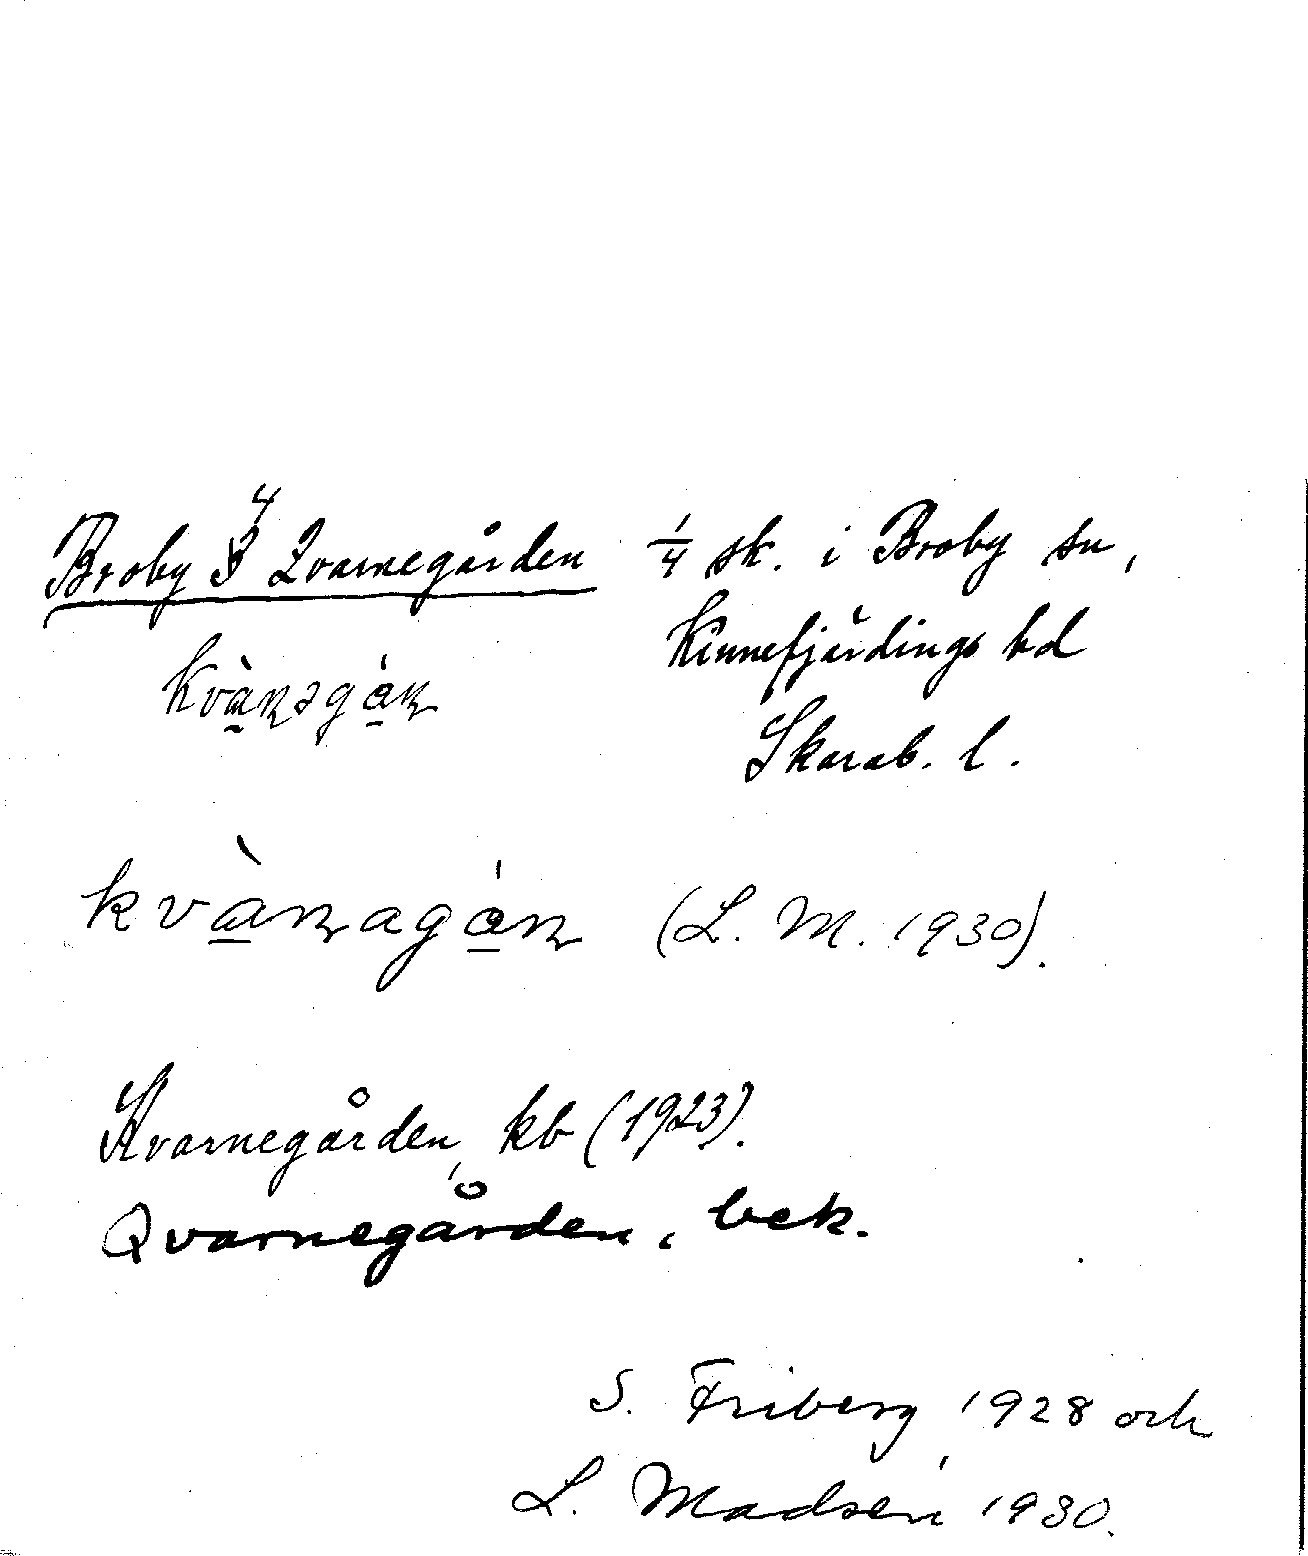 Broby 4 Qvarnegården 1/4 sk. i Broby sn,
Kinnefjärdings hd
kvànəgán
Skarab. l.
kvànagán (L. M. 1930).
Kvarnegården, kb (1923).
Qvarnegården, bek.
S. Friberg 1928 och
L. Madsén 1930.